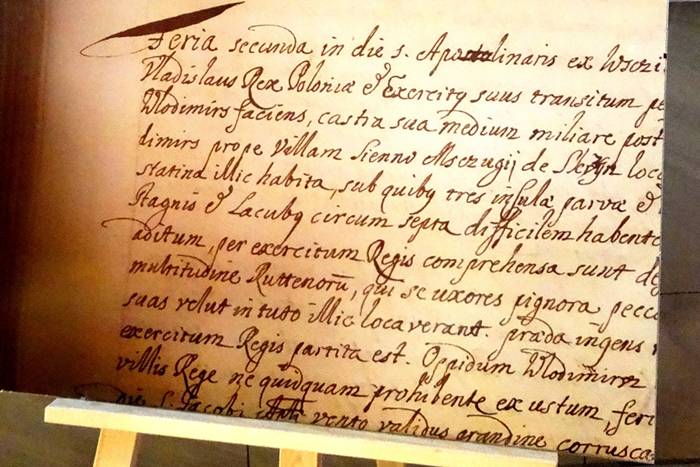 Feria secunda in die s. Apostolinaris ex Wszzi
Vladislaus Rex Poloniæ & Exercitq suus transitum pe
Wlodimirs faciens, castra sua medium miliare post
dimirs prope Villam Sienno Msczugij de loc
statina illic habita, sub quibq tres insulæ parvæ &
Stagnis & Lacubq circum septa difficilem habente
aditum, per exercitum Regis comprehensa sunt de
multitudine Ruttenorū, qui se uxores pignora pecc
suas velut in tuto illic locaverant. præda ingens
exercitum Regis partita est. Oppidum Wlodimirz
villis Rege ne quidquam prohibente exustum, feri
die S. Jacobi vento validus grandine corrusca